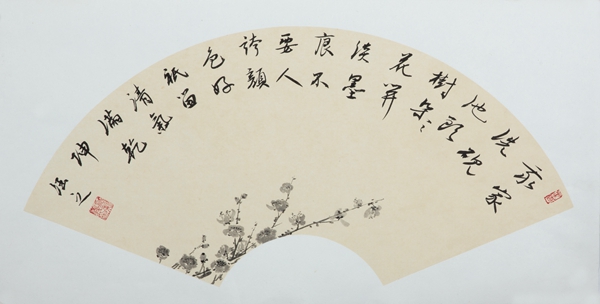 我家
洗硯
池頭
樹朵々
花開
淡墨
痕不
要人
誇顏
色好
祇留
清氣
滿乾
坤